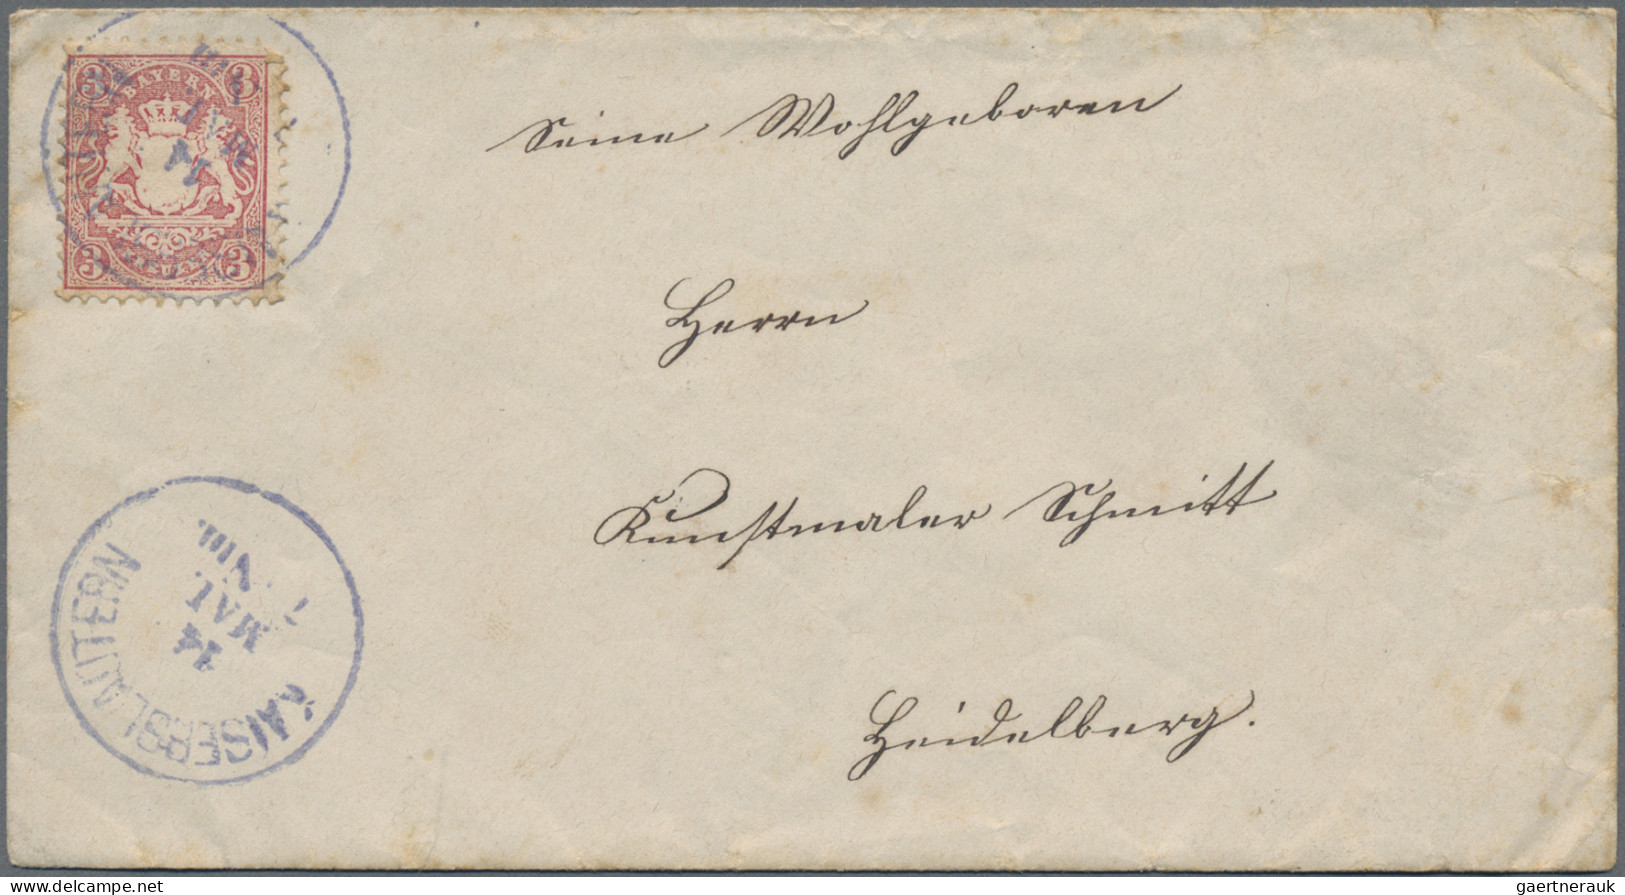 3 BAYERN 3
3 3
Seine Wohlgeboren
Herrn
Kunstmaler Schmitt
Heidelberg.
KAISERSLAUTERN
14
MAI.
VIII.
www.delcampe.net
gaertnerauk